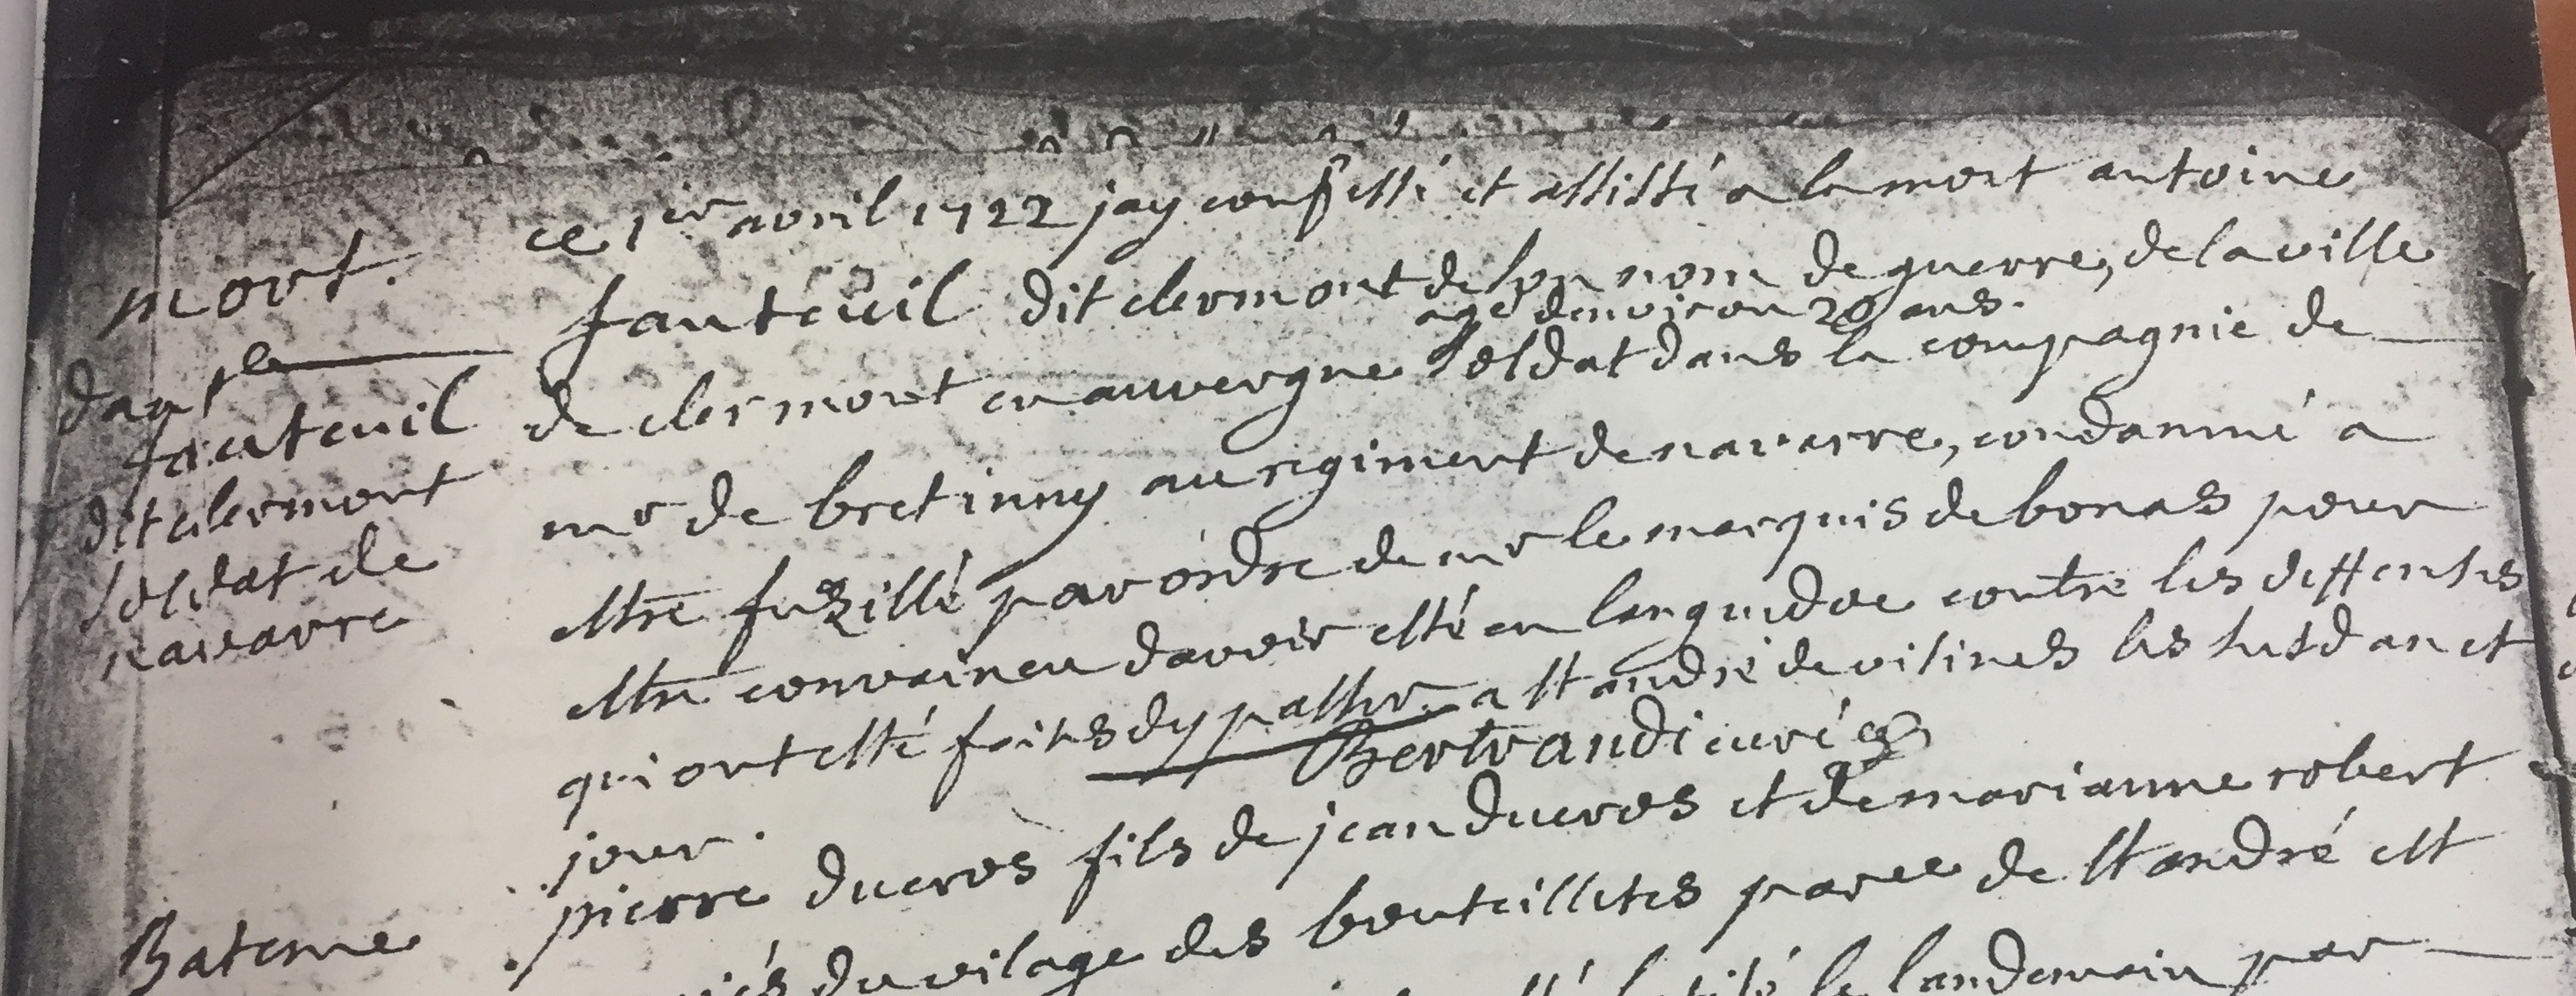 mort.
dant^ne
fauteuil
dit clermont
soldat de
navarre
ce 1^er avril 1722 jay confessé et assisté a la mort antoine
fauteuil dit clermont de son nom de guerre, de la ville
agé denviron 20 ans.
de clermont en auvergne soldat dans la compagnie de
m^r de bretinny au regiment de navarre, condamné a
estre fuzillé par ordre de m^r le marquis de bonas pour
estre convaincu davoir esté en languedoc contre les deffenses
qui ont esté faites dy passer a st andré de
les susd an et
jour.
Bertrandi curé
Bateme
pierre ducros fils de jean ducros et de marianne robert
du vilage des bouteilletes paroe de st andré est
le landemain par